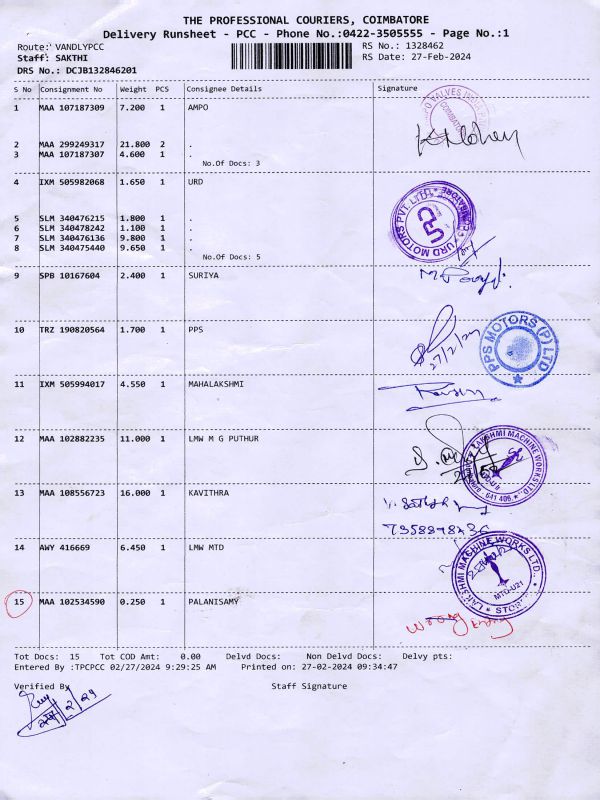 THE PROFESSIONAL COURIERS, COIMBATORE
Delivery Runsheet - PCC - Phone No.:0422-3505555 - Page No.:1
Route: VANDLYPCC RS No.: 1328462
Staff: SAKTHI RS Date: 27-Feb-2024
DRS No.: DCJB132846201
S No Consignment No Weight PCS Consignee Details Signature
1 MAA 107187309 7.200 1 AMPO
2 MAA 299249317 21.800 2 .
3 MAA 107187307 4.600 1 .
No.Of Docs: 3
4 IXM 505982068 1.650 1 URD
URD MOTORS PVT. LTD.
URD
5 SLM 340476215 1.800 1 .
6 SLM 340478242 1.100 1 .
7 SLM 340476136 9.800 1 .
8 SLM 340475440 9.650 1 .
No.Of Docs: 5
9 SPB 10167604 2.400 1 SURIYA
10 TRZ 190820564 1.700 1 PPS
27/2/24
PPS MOTORS (P) LTD
11 IXM 505994017 4.550 1 MAHALAKSHMI
12 MAA 102882235 11.000 1 LMW M G PUTHUR
LAKSHMI MACHINE WORKS LTD.
641 406.
13 MAA 108556723 16.000 1 KAVITHRA
14 AWY 416669 6.450 1 LMW MTD
LAKSHMI MACHINE WORKS LTD.,
MTD-U21
STORES
15 MAA 102534590 0.250 1 PALANISAMY
wrong
Tot Docs: 15 Tot COD Amt: 0.00 Delvd Docs: Non Delvd Docs: Delvy pts:
Entered By :TPCPCC 02/27/2024 9:29:25 AM Printed on: 27-02-2024 09:34:47
Verified By Staff Signature